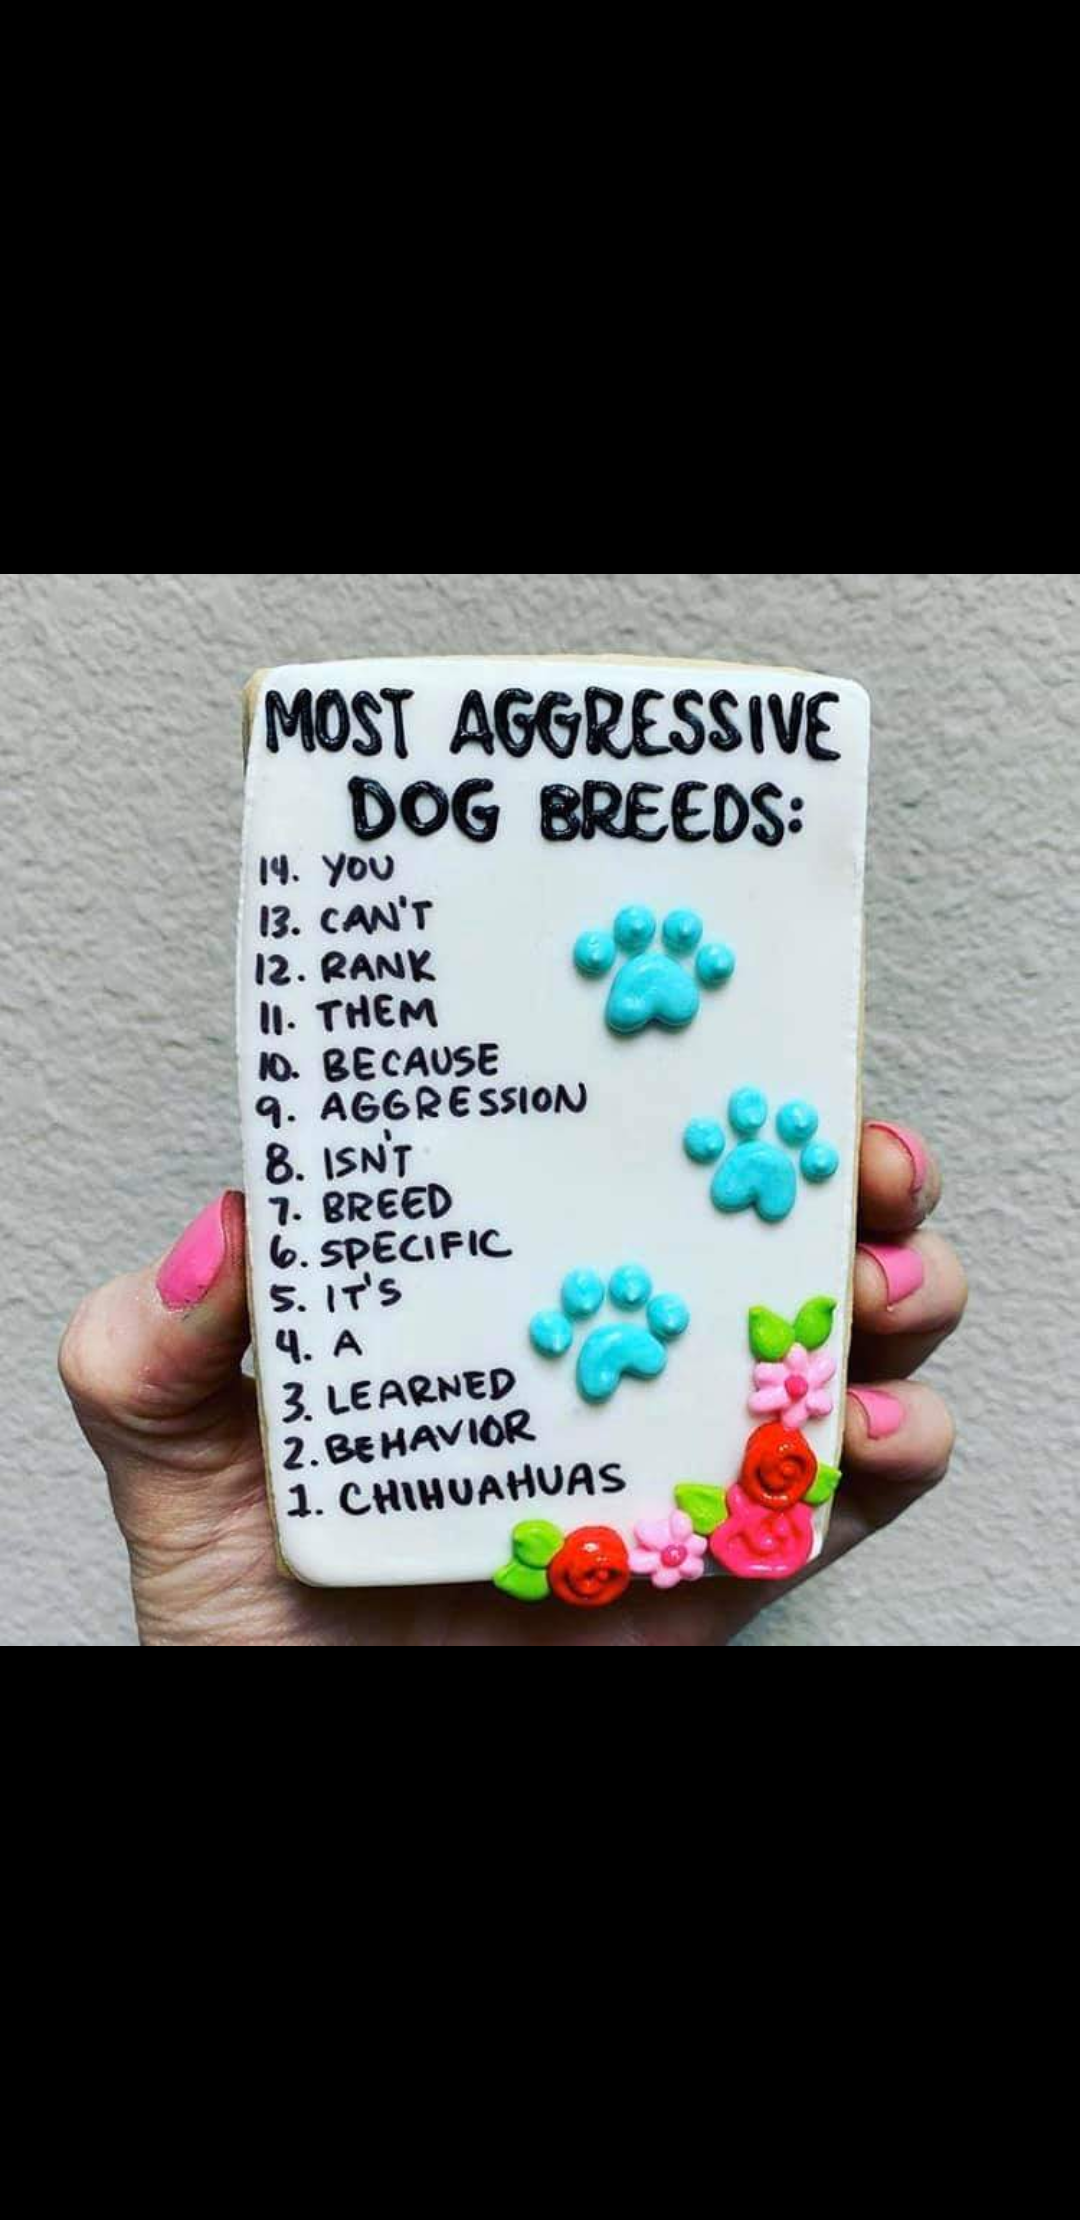 MOST AGGRESSIVE
DOG BREEDS:
14. YOU
13. CAN'T
12. RANK
11. THEM
10. BECAUSE
9. AGGRESSION
8. ISN'T
7. BREED
6. SPECIFIC
5. IT'S
4. A
3. LEARNED
2. BEHAVIOR
1. CHIHUAHUAS